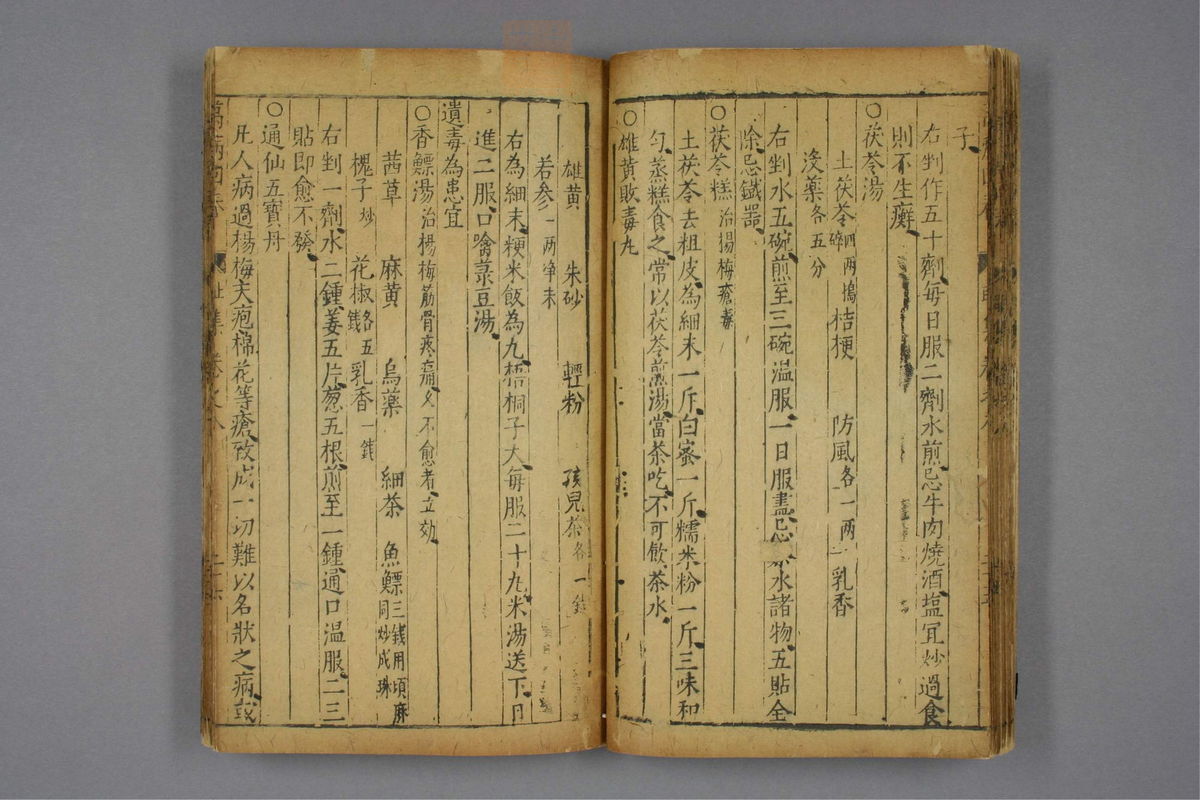 子
右剉作五十劑每日服二劑水煎忌牛肉燒酒塩冝炒過食
則不生癬
○茯苓湯
土茯苓四兩搗碎 桔梗 防風各一两 乳香
沒藥各五分
右剉水五碗煎至三碗温服一日服盡忌 水諸物五貼全
除忌鐵器
○茯苓糕治揚梅瘡毒
土茯苓去粗皮為細末一斤白蜜一斤糯米粉一斤三味和
匀蒸糕食之常以茯苓煎湯當茶吃不可飲茶水
○雄黄敗毒丸
雄黄 朱砂 輕粉 孩兒茶各一錢
若參一两净末
右為細末粳米飯為丸梧桐子大每服二十九米湯送下日
進二服口噙菉豆湯
遺毒為患宜
○香鰾湯治楊梅筋骨疼痛久不愈者立効
茜草 麻黄 烏藥 細茶 魚鰾三錢用頃麻同炒成珠
槐子炒 花椒各五錢 乳香一錢
右剉一劑水二鍾姜五片葱五根煎至一鍾通口温服二三
貼即愈不發
○通仙五寶丹
凡人病過楊梅天疱棉花等瘡致成一切難以名狀之病或
萬病回春 卷之八